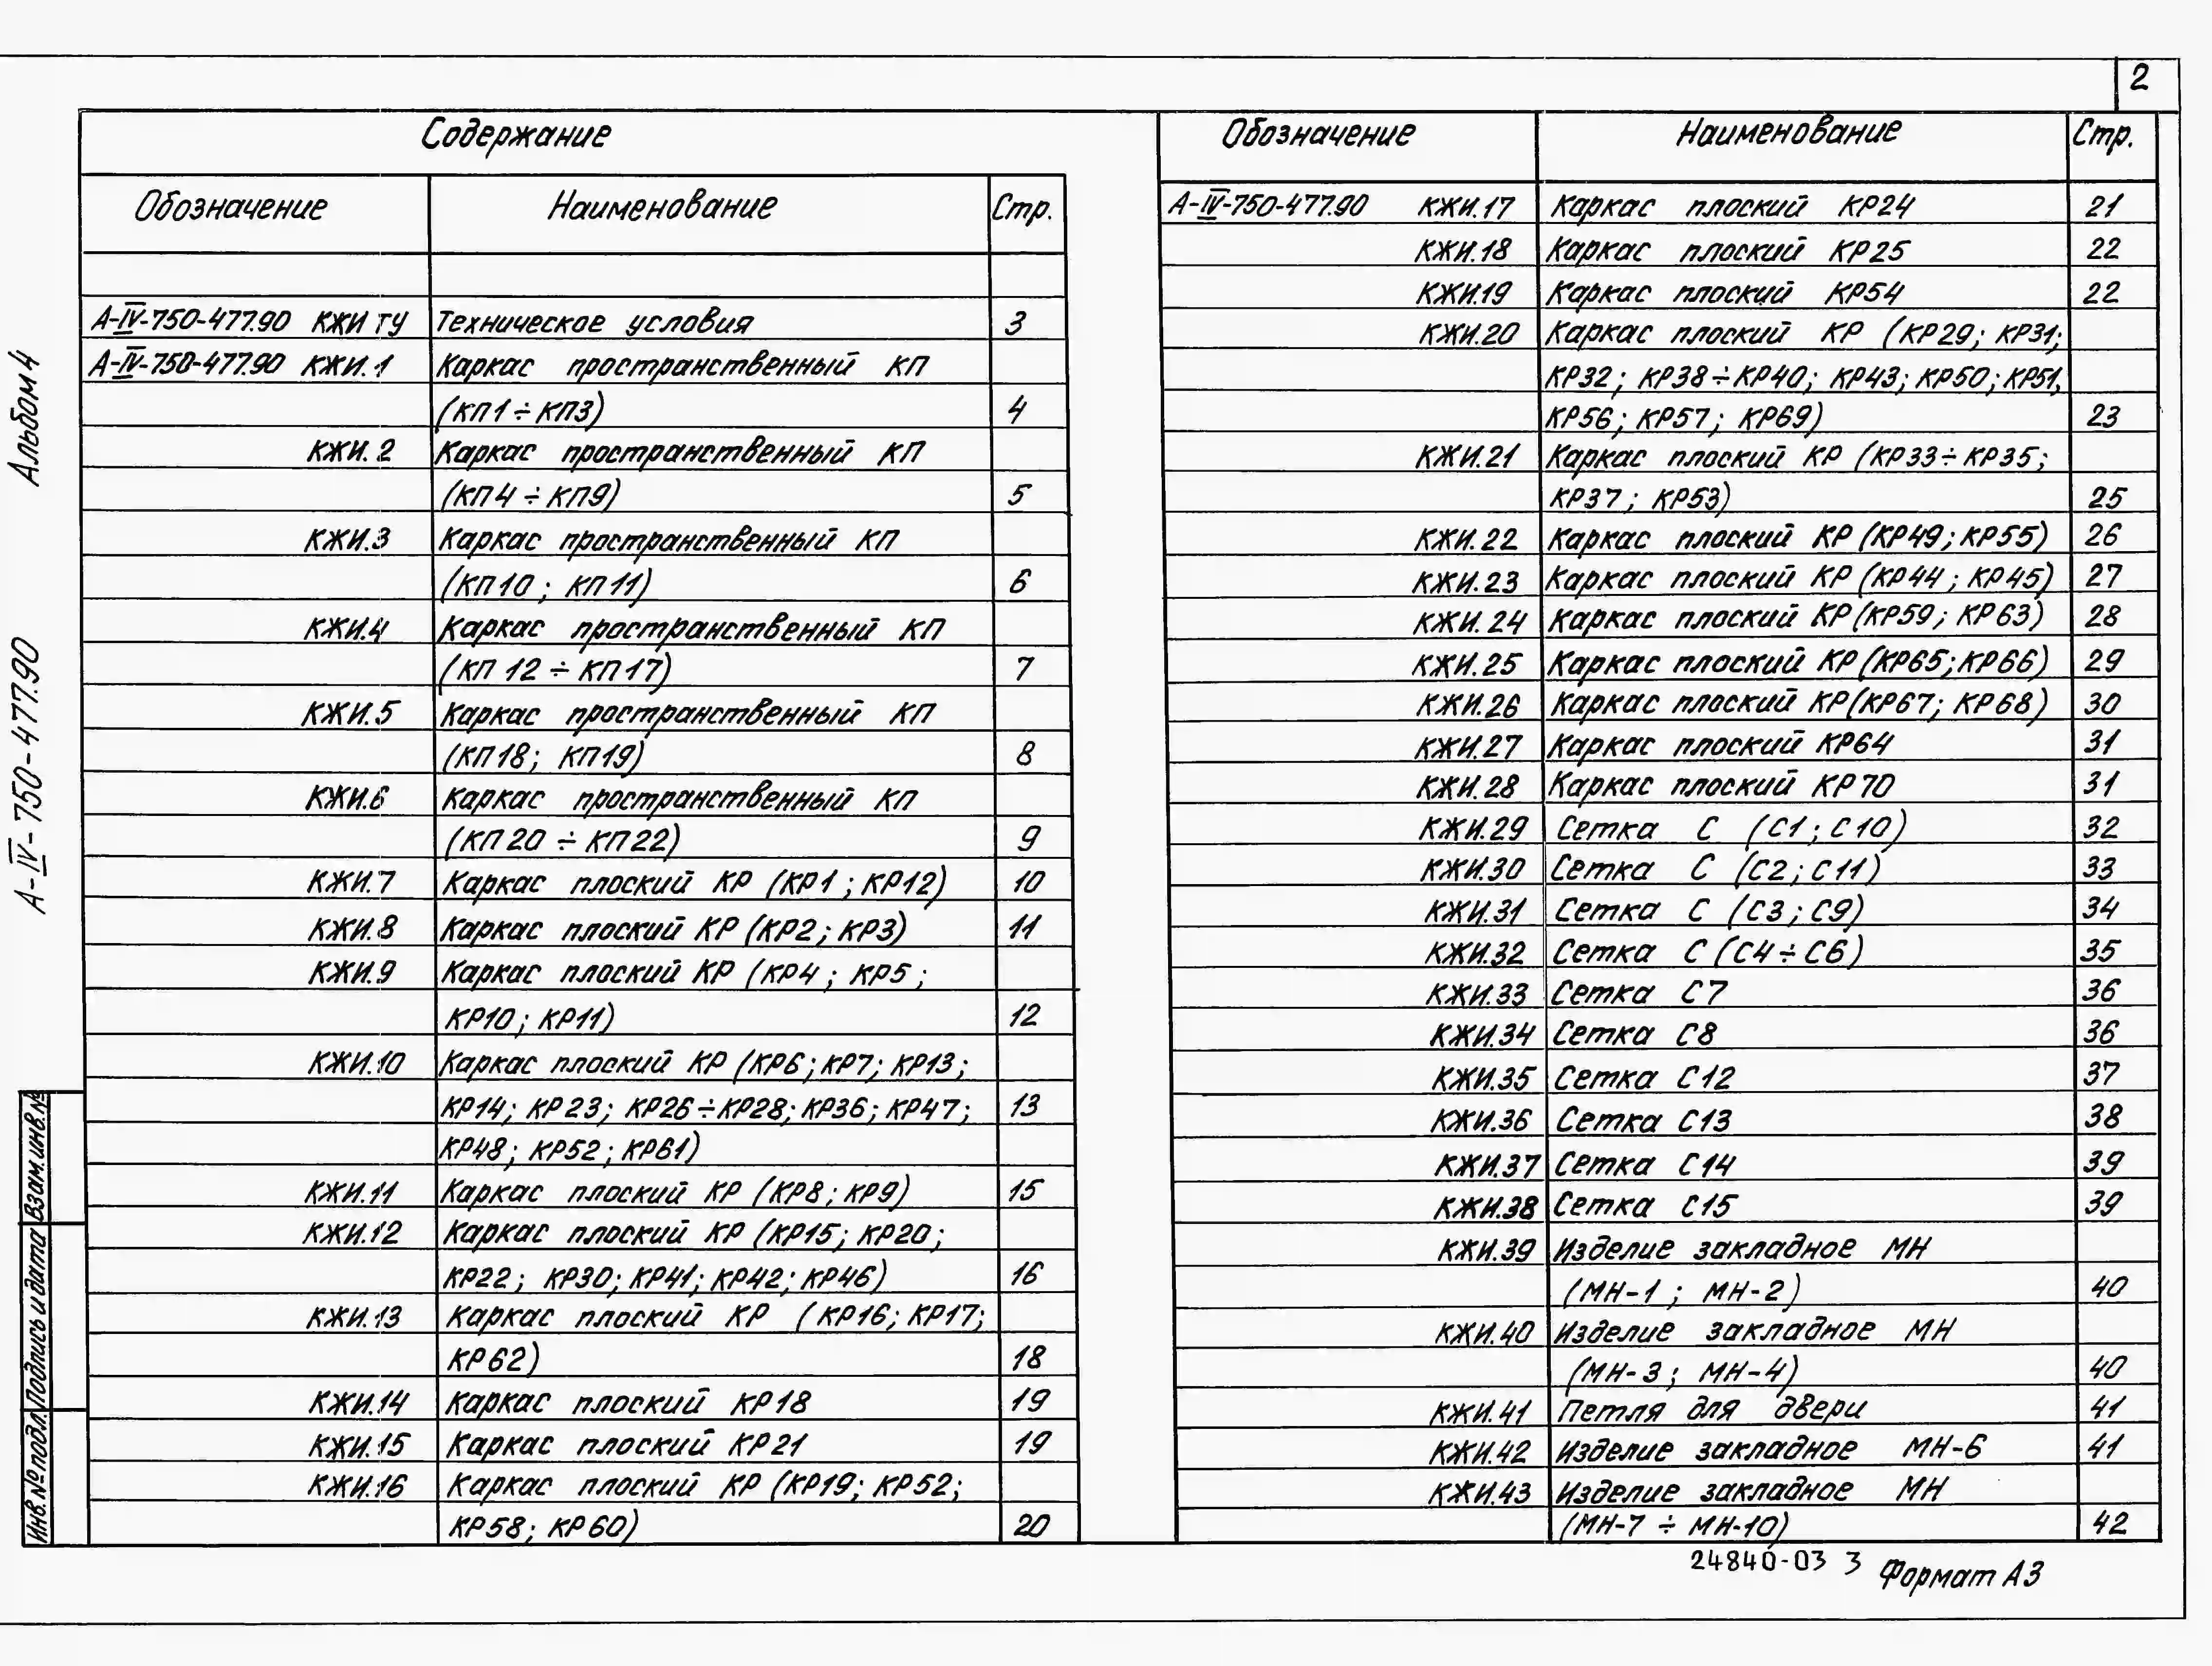 2
Содержание
Обозначение Наименование Стр.
А-IV-750-477.90 КЖИ ТУ Техническое условия 3
А-IV-750-477.90 КЖИ.1 Каркас пространственный КП
(КП1÷КП3) 4
КЖИ.2 Каркас пространственный КП
(КП4÷КП9) 5
КЖИ.3 Каркас пространственный КП
(КП10; КП11) 6
КЖИ.4 Каркас пространственный КП
(КП12÷КП17) 7
КЖИ.5 Каркас пространственный КП
(КП18; КП19) 8
КЖИ.6 Каркас пространственный КП
(КП20÷КП22) 9
КЖИ.7 Каркас плоский КР (КР1; КР12) 10
КЖИ.8 Каркас плоский КР (КР2; КР3) 11
КЖИ.9 Каркас плоский КР (КР4; КР5;
КР10; КР11) 12
КЖИ.10 Каркас плоский КР (КР6; КР7; КР13;
КР14; КР23; КР26÷КР28; КР36; КР47; 13
КР48; КР52; КР61)
КЖИ.11 Каркас плоский КР (КР8; КР9) 15
КЖИ.12 Каркас плоский КР (КР15; КР20;
КР22; КР30; КР41; КР42; КР46) 16
КЖИ.13 Каркас плоский КР (КР16; КР17;
КР62) 18
КЖИ.14 Каркас плоский КР18 19
КЖИ.15 Каркас плоский КР21 19
КЖИ.16 Каркас плоский КР (КР19; КР52;
КР58; КР60) 20
Обозначение Наименование Стр.
А-IV-750-477.90 КЖИ.17 Каркас плоский КР24 21
КЖИ.18 Каркас плоский КР25 22
КЖИ.19 Каркас плоский КР54 22
КЖИ.20 Каркас плоский КР (КР29; КР31;
КР32; КР38÷КР40; КР43; КР50; КР51,
КР56; КР57; КР69) 23
КЖИ.21 Каркас плоский КР (КР33÷КР35;
КР37; КР53) 25
КЖИ.22 Каркас плоский КР (КР49; КР55) 26
КЖИ.23 Каркас плоский КР (КР44; КР45) 27
КЖИ.24 Каркас плоский КР (КР59; КР63) 28
КЖИ.25 Каркас плоский КР (КР65; КР66) 29
КЖИ.26 Каркас плоский КР (КР67; КР68) 30
КЖИ.27 Каркас плоский КР64 31
КЖИ.28 Каркас плоский КР70 31
КЖИ.29 Сетка С (С1; С10) 32
КЖИ.30 Сетка С (С2; С11) 33
КЖИ.31 Сетка С (С3; С9) 34
КЖИ.32 Сетка С (С4÷С6) 35
КЖИ.33 Сетка С7 36
КЖИ.34 Сетка С8 36
КЖИ.35 Сетка С12 37
КЖИ.36 Сетка С13 38
КЖИ.37 Сетка С14 39
КЖИ.38 Сетка С15 39
КЖИ.39 Изделие закладное МН
(МН-1; МН-2) 40
КЖИ.40 Изделие закладное МН
(МН-3; МН-4) 40
КЖИ.41 Петля для двери 41
КЖИ.42 Изделие закладное МН-6 41
КЖИ.43 Изделие закладное МН
(МН-7÷МН-10) 42
24840-03 3
Формат А3
А-IV-750-477.90 Альбом 4
Инв.№ подл. Подпись и дата Взам.инв.№